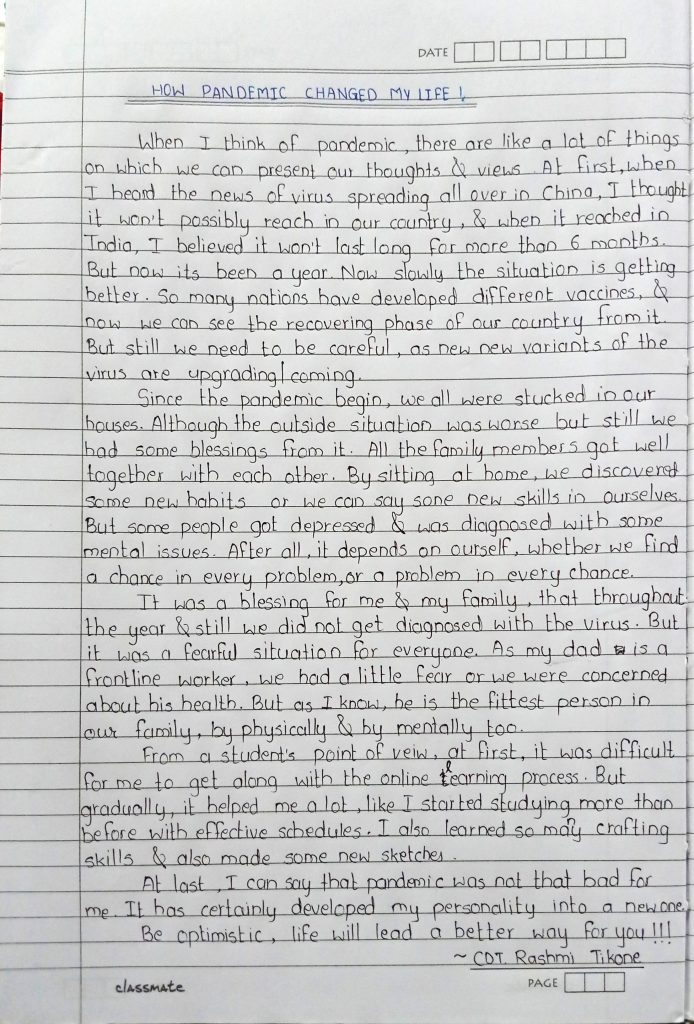 DATE
HOW PANDEMIC CHANGED MY LIFE !
When I think of pandemic, there are like a lot of things
on which we can present our thoughts & views. At first, when
I heard the news of virus spreading all over in China, I thought
it won't possibly reach in our country, & when it reached in
India, I believed it won't last long for more than 6 months.
But now its been a year. Now slowly the situation is getting
better. So many nations have developed different vaccines, &
now we can see the recovering phase of our country from it.
But still we need to be careful, as new new variants of the
virus are upgrading/coming.
Since the pandemic begin, we all were stucked in our
houses. Although the outside situation was worse but still we
had some blessings from it. All the family members got well
together with each other. By sitting at home, we discovered
some new habits or we can say sone new skills in ourselves.
But some people got depressed & was diagnosed with some
mental issues. After all, it depends on ourself, whether we find
a chance in every problem, or a problem in every chance.
It was a blessing for me & my family, that throughout
the year & still we did not get diagnosed with the virus. But
it was a fearful situation for everyone. As my dad is a
frontline worker, we had a little fear or we were concerned
about his health. But as I know, he is the fittest person in
our family, by physically & by mentally too.
From a student's point of veiw, at first, it was difficult
for me to get along with the online learning process. But
gradually, it helped me a lot, like I started studying more than
before with effective schedules. I also learned so many crafting
skills & also made some new sketches.
At last, I can say that pandemic was not that bad for
me. It has certainly developed my personality into a new one.
Be optimistic, life will lead a better way for you !!!
~ CDT. Rashmi Tikone
classmate
PAGE